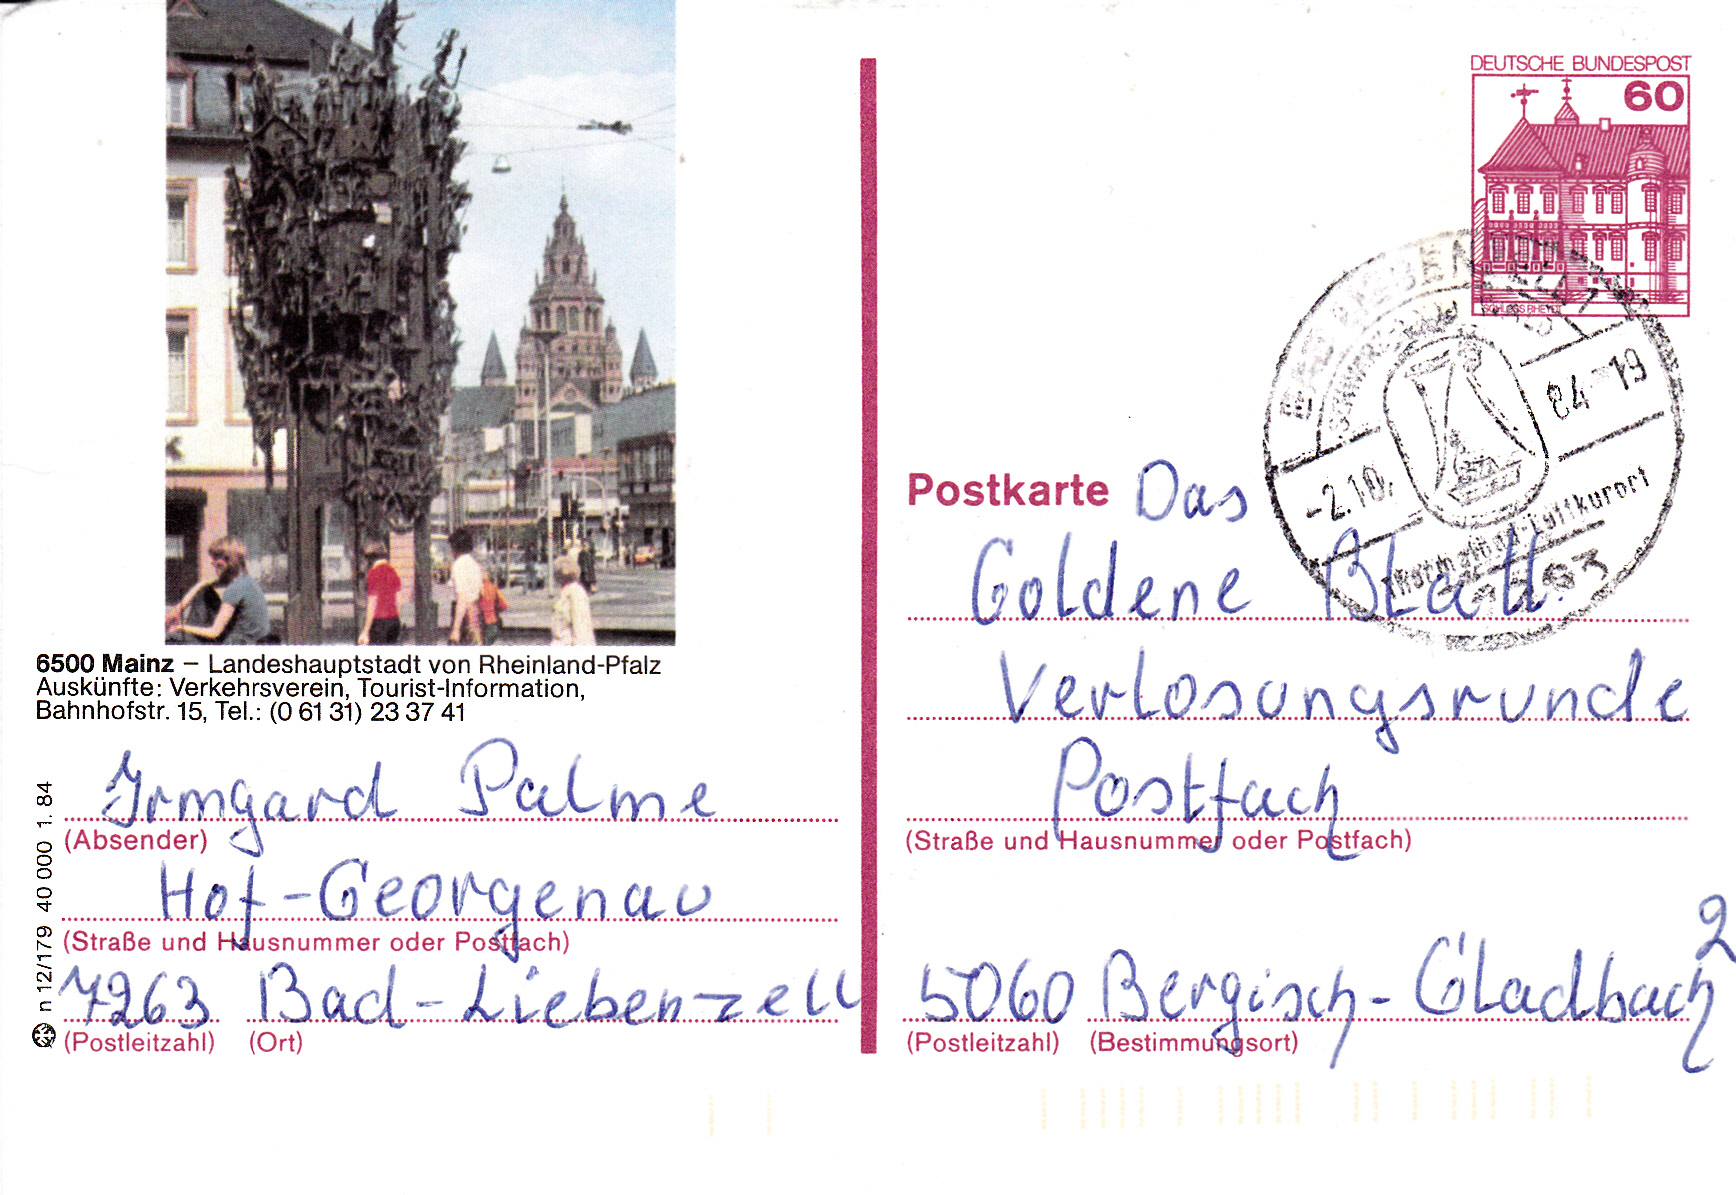 DEUTSCHE BUNDESPOST
60
SCHLOSS RHEYDT
BAD LIEBENZELL
-2.10. 84-19
Thermalbad-Luftkurort
7263
6500 Mainz – Landeshauptstadt von Rheinland-Pfalz
Auskünfte: Verkehrsverein, Tourist-Information,
Bahnhofstr. 15, Tel.: (0 61 31) 23 37 41
Irmgard Palme
(Absender)
Hof-Georgenau
(Straße und Hausnummer oder Postfach)
7263 Bad-Liebenzell
(Postleitzahl) (Ort)
n 12/179 40 000 1. 84
Postkarte Das
Goldene Blatt.
Verlosungsrunde
Postfach
(Straße und Hausnummer oder Postfach)
5060 Bergisch-Gladbach 2
(Postleitzahl) (Bestimmungsort)